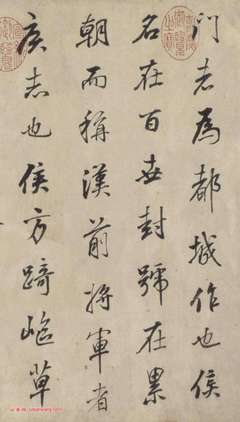 門者為都城作也侯
名在百世封號在累
朝而稱漢前將軍者
矦志也侯方踦嶇草